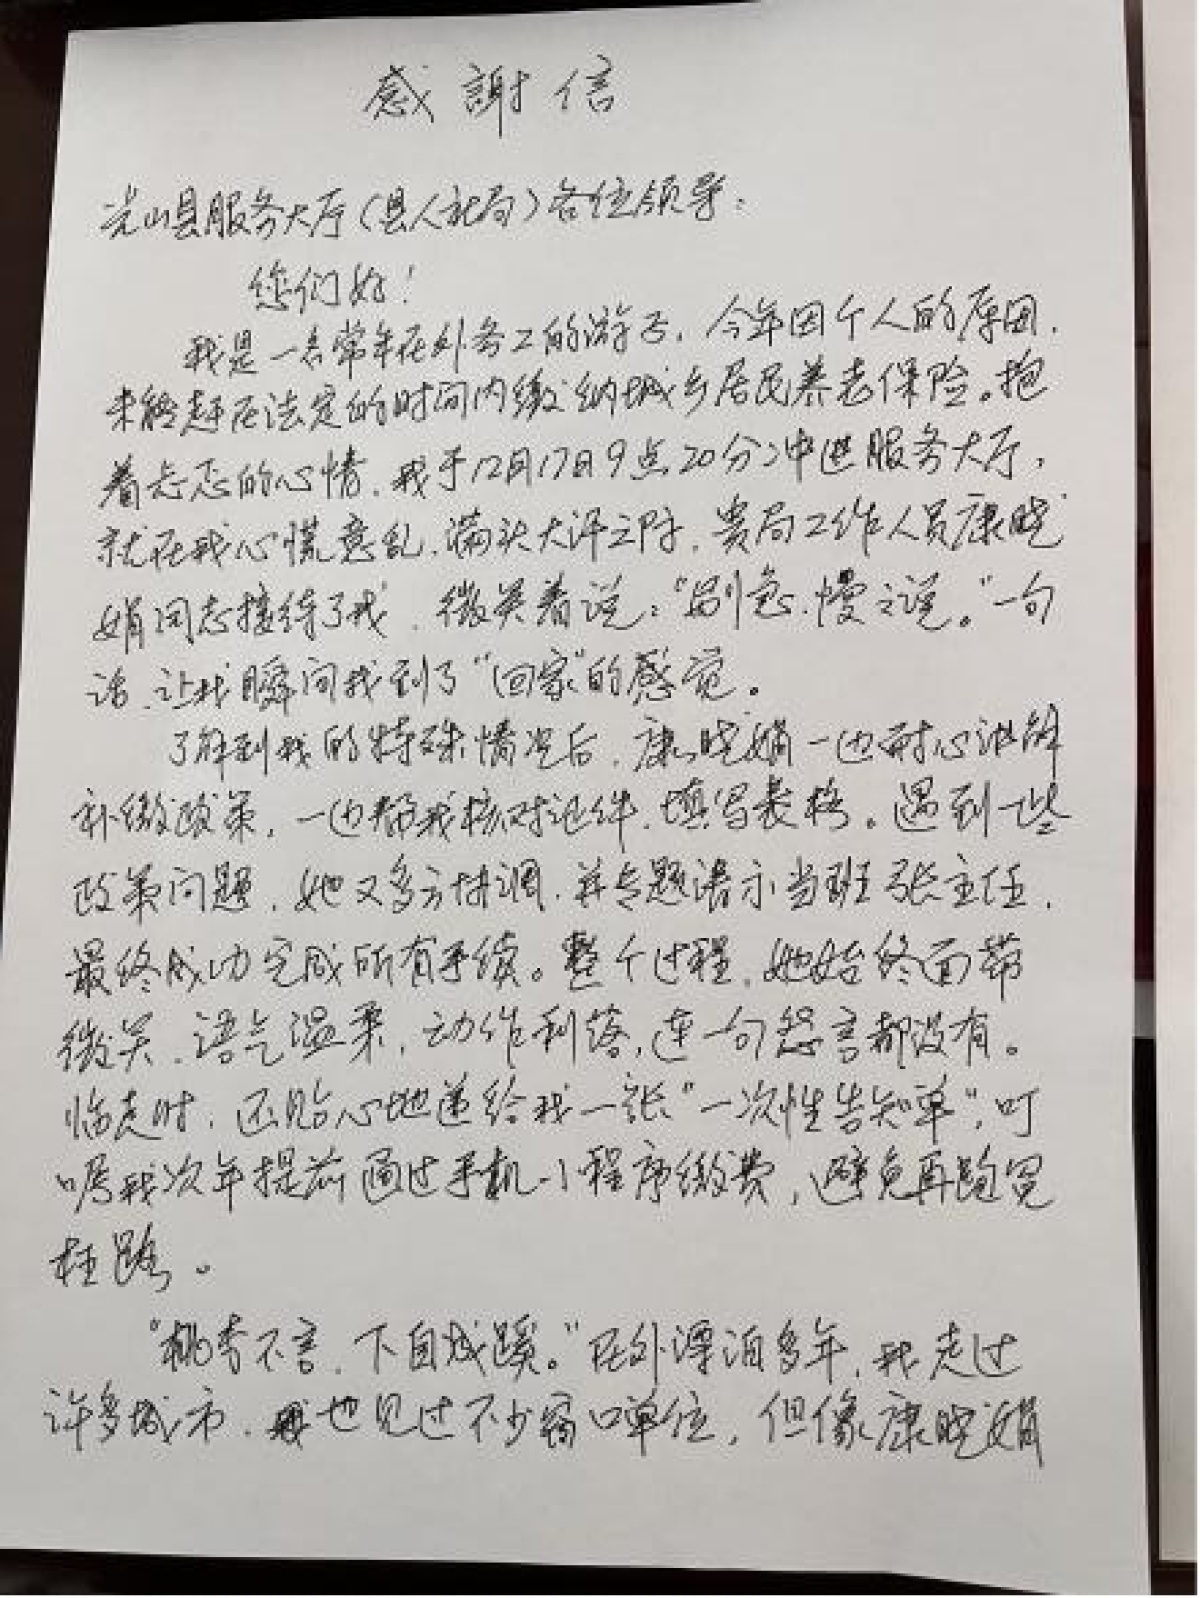 感謝信
光山县服务大厅（县人社局）各位领导：
您们好！
我是一名常年在外务工的游子，今年因个人的原因，
未能赶在法定的时间内缴纳城乡居民养老保险。抱
着忐忑的心情，我于12月17日9点20分冲进服务大厅，
就在我心慌意乱、满头大汗之际，贵局工作人员康晓
娟同志接待了我，微笑着说：“别急，慢之说。”一句
话，让我瞬间找到了“回家”的感觉。
了解到我的特殊情况后，康晓娟一边耐心讲解
补缴政策，一边帮我核对证件、填写表格。遇到一些
政策问题，她又多方协调，并专题请示当班张主任，
最终成功完成所有手续。整个过程，她始终面带
微笑、语气温柔，动作利落，连一句怨言都没有。
临走时，还贴心地递给我一张“一次性告知单”，叮
嘱我次年提前通过手机小程序缴费，避免再跑冤
枉路。
“桃李不言，下自成蹊。”在外漂泊多年，我走过
许多城市，我也见过不少窗口单位，但像康晓娟